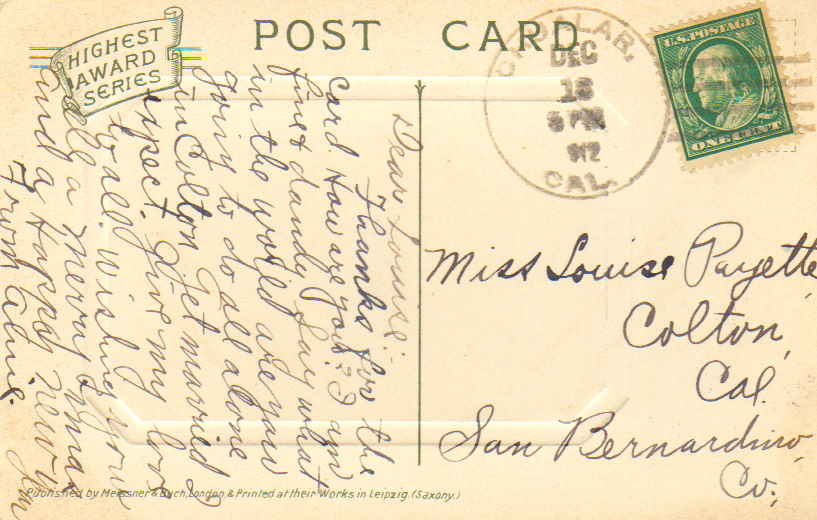 HIGHEST
AWARD
SERIES
POST CARD
CAL.
DEC
18
8 PM
1912
CAL.
U.S. POSTAGE
ONE CENT
Dear Louise:-
Thanks for the
card How are you? I am
fine & dandy. Say what
in the world are you
going to do all alone
in Colton. Get married I
expect. Give my love
to all. Wishing you
all a Merry Xmas
and a Happy New
From
Miss Louise Payette
Colton,
Cal.
San Bernardino,
Co.
Published by Meissner & Buch, London, & Printed at their Works in Leipzig. (Saxony.)